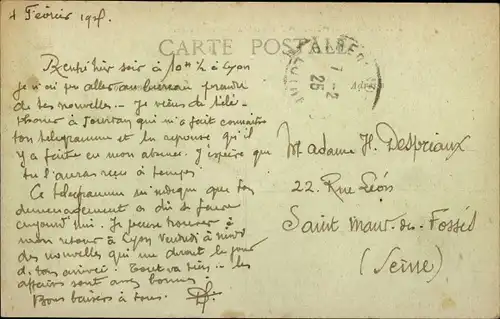 4 Février 1925.
CARTE POSTALE
Rentré hier soir à 10H ½ à Lyon
je n'ai pu aller au bureau prendre
de tes nouvelles - Je viens de télé-
phoner à Jourdan qui m'a fait connaître
ton télégramme et la réponse qu'il
y a faite en mon absence. J'espère que
tu l'auras reçu à temps.
Ce télégramme indique que ton
déménagement a dû se faire
aujourd'hui. Je pense trouver à
mon retour à Lyon Vendredi à midi
des nouvelles qui me diront le jour
de ton arrivée. Tout va bien - les
affaires sont assez bonnes.
Bons baisers à tous.
7-2
25
Madame H. Despriaux
22. Rue Léon
Saint Maur-des-Fossés
(Seine)